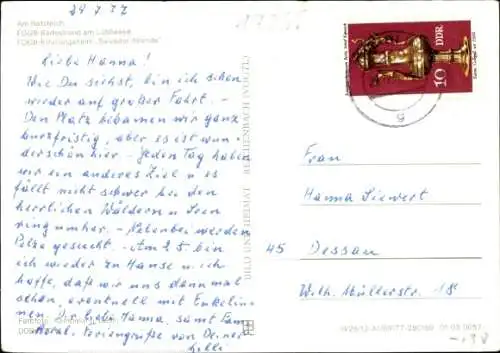 29.7.77
Am Ratsteich
FDGB-Badestrand am Lübbesee
FDGB-Erholungsheim "Salvador Allende"
Liebe Hanna!
Wie Du siehst, bin ich schon
wieder auf großer Fahrt. –
Den Platz bekamen wir ganz
kurzfristig, aber es ist wun-
derschön hier. – Jeden Tag haben
wir ein anderes Ziel u. es
fällt nicht schwer bei den
herrlichen Wäldern u. Seen
ringumher. – Nebenbei werden
Pilze gesucht. – Am 2. 5 bin
ich wieder zu Hause u. ich
hoffe, daß wir uns dann mal
sehen, eventuell mit Enkelin-
nen. Dir liebe Hanna, samt Fam.
Feriengrüße von Deiner
Lilli
BILD UND HEIMAT REICHENBACH (VOGTL)
DDR
10
Frau
Hanna Siewert
45 Dessau
Wilh. Müllerstr. 18